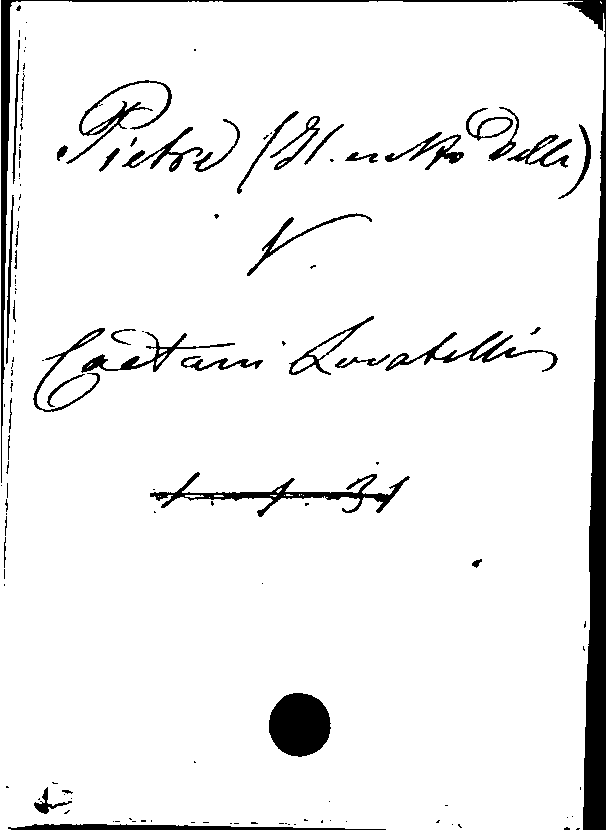 Pietre (Il culto delle)
V.
Caetani Lovatelli
1. 1. 31